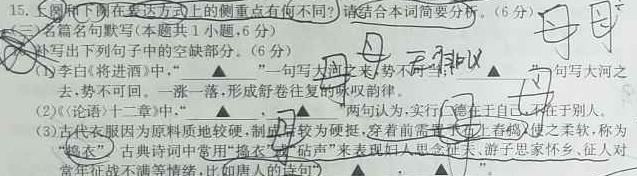 15.上阕和下阕在表达方式上的侧重点有何不同?请结合本词简要分析。(6分)
(三)名篇名句默写(本题共1小题,6分)
补写出下列句子中的空缺部分。(6分)
母 母 母
(1)李白《将进酒》中,“▲”一句写大河之来,势不可当;“▲”一句写大河之
母 母
去,势不可回。一涨一落,形成舒卷往复的咏叹韵律。
(2)《〈论语〉十二章》中,“▲,▲”两句认为,实行仁德在于自己,不在于别人。
(3)古代衣服因为原料质地较硬,制成后较为硬挺,穿着前需置于石上舂捣,使之柔软,称为
“捣衣”。古典诗词中常用“捣衣”或“砧声”来表现妇人思念征夫、游子思家怀乡、征人对
常年征战不满等情绪,比如唐人的诗句“▲,▲”